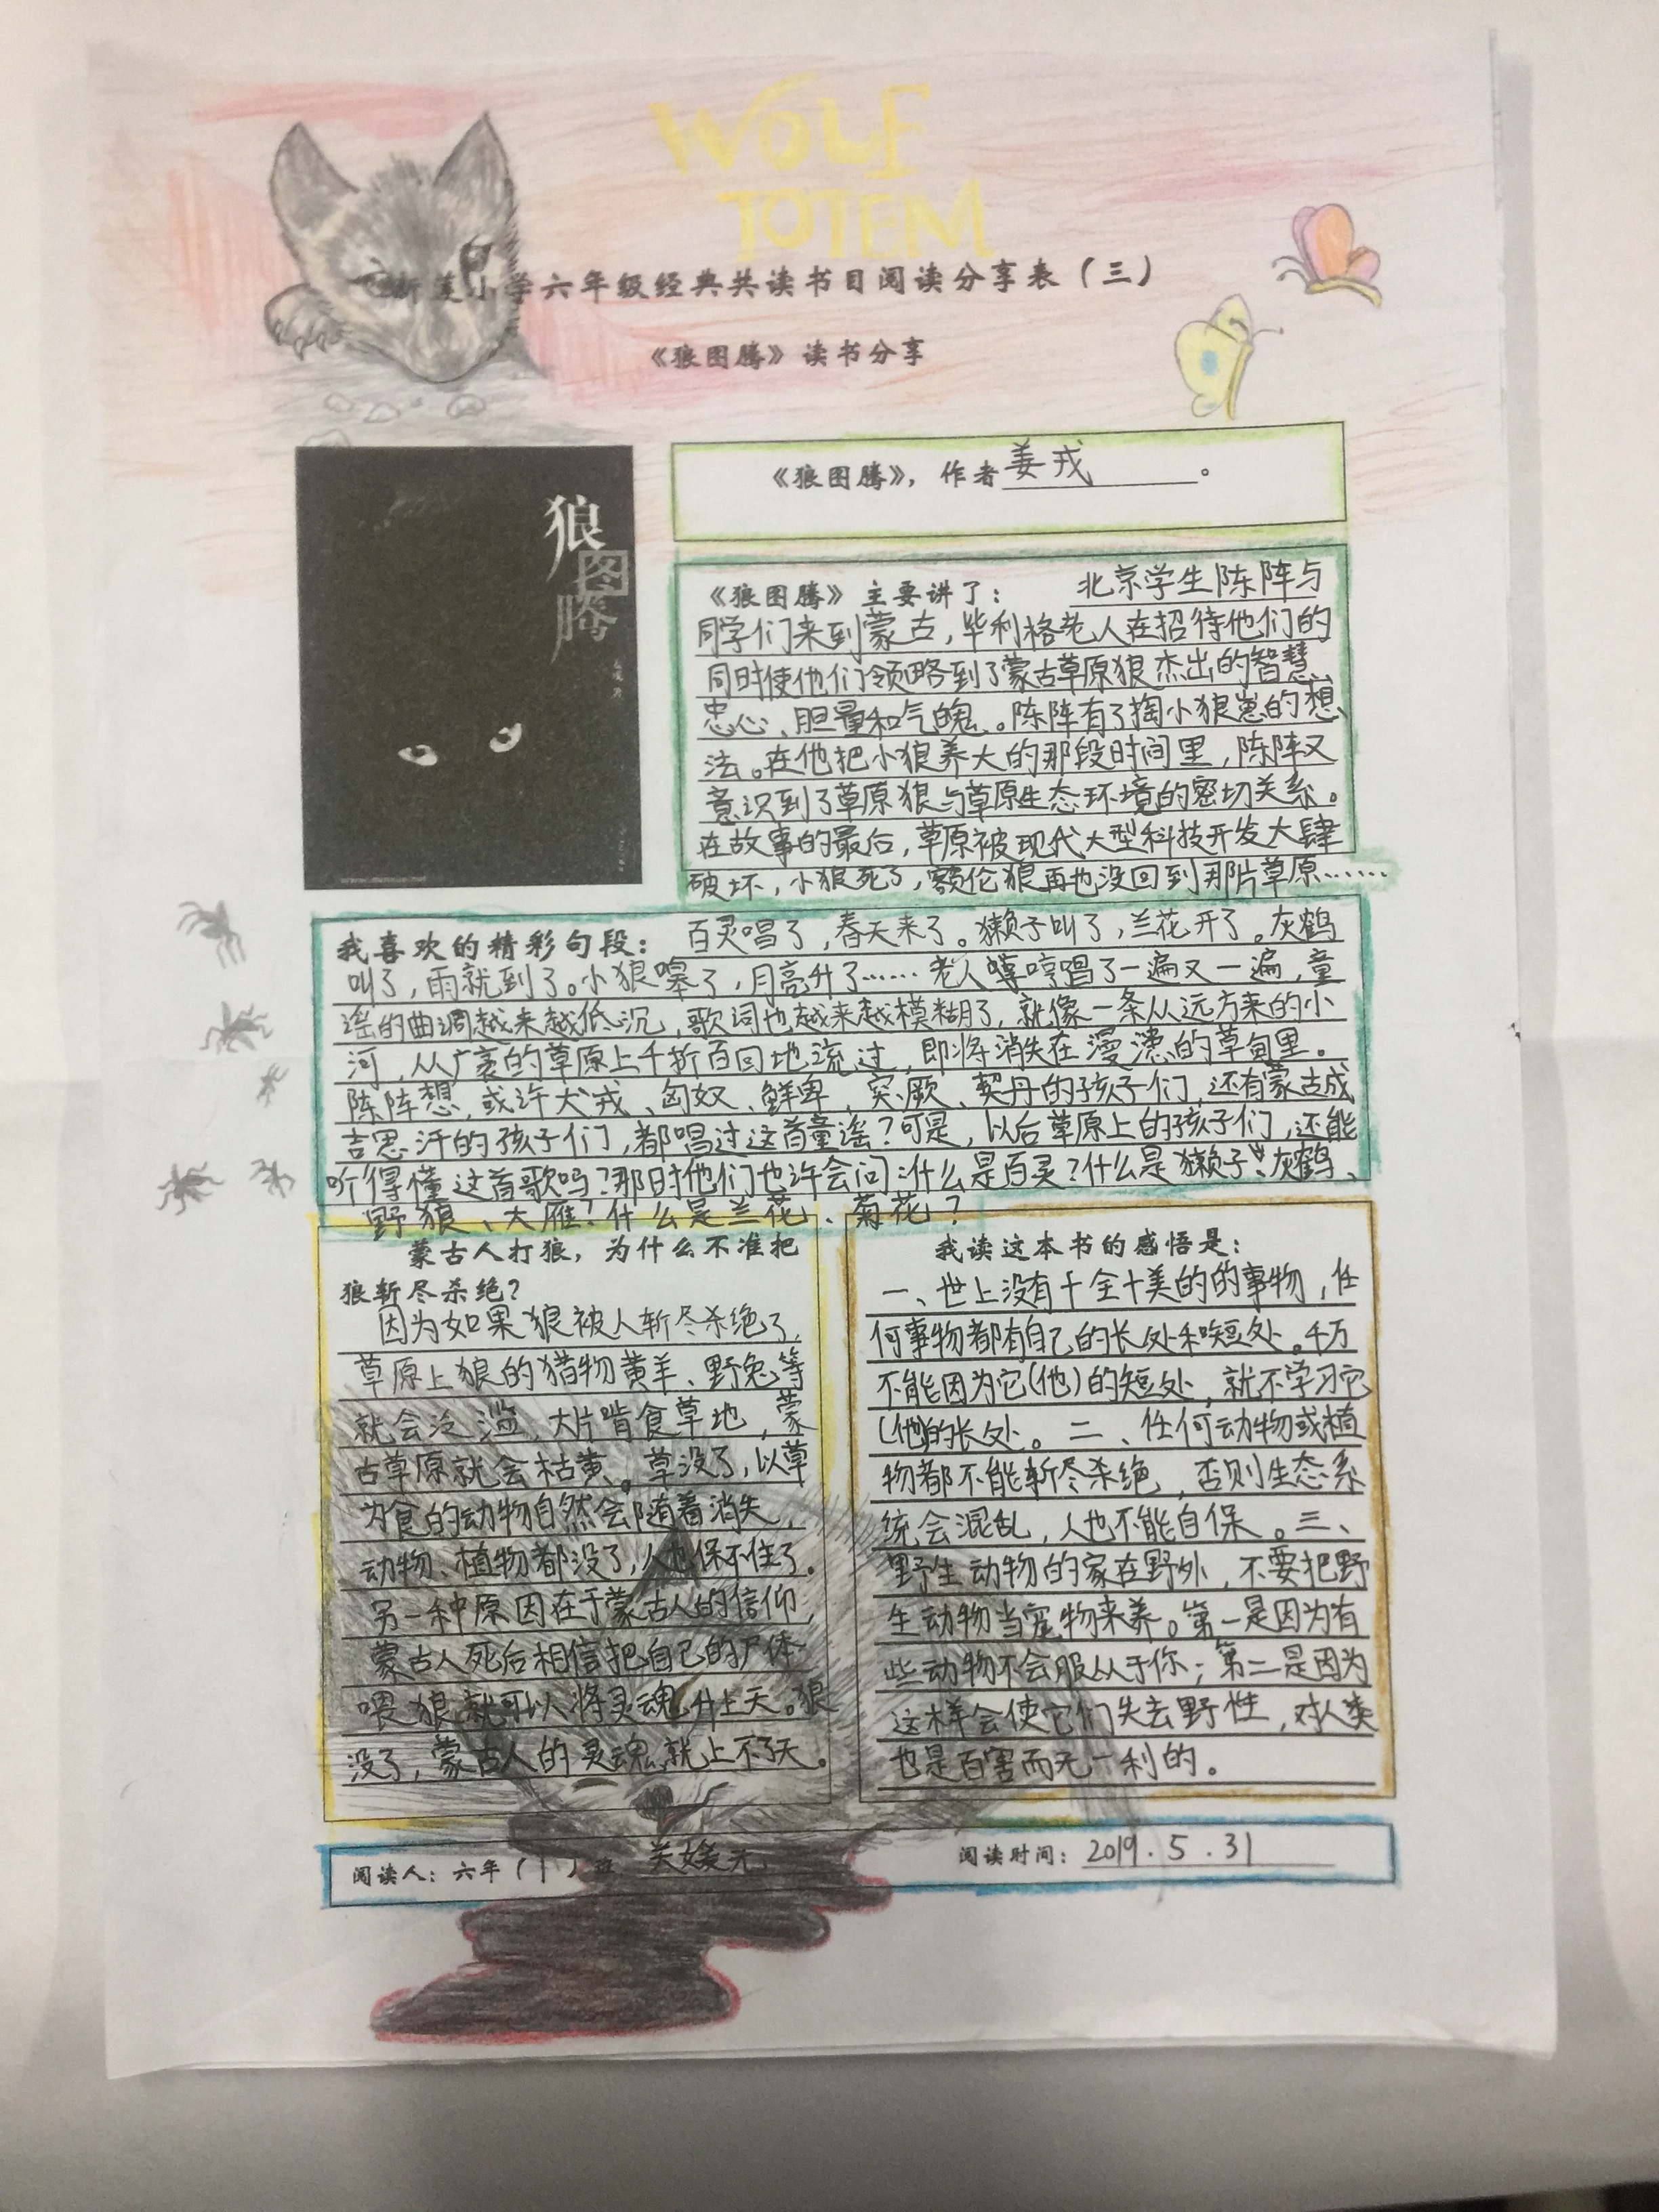 WOLF
TOTEM
小学六年级经典共读书目阅读分享表（三）
《狼图腾》读书分享
狼
图
腾
《狼图腾》，作者姜戎。
《狼图腾》主要讲了： 北京学生陈阵与
同学们来到蒙古，毕利格老人在招待他们的
同时使他们领略到了蒙古草原狼杰出的智慧、
忠心、胆量和气魄。陈阵有了掏小狼崽的想
法。在他把小狼养大的那段时间里，陈阵又
意识到了草原狼与草原生态环境的密切关系。
在故事的最后，草原被现代大型科技开发大肆
破坏，小狼死了，额伦狼再也没回到那片草原……
我喜欢的精彩句段： 百灵唱了，春天来了。獭子叫了，兰花开了。灰鹤
叫了，雨就到了。小狼嗥了，月亮升了……老人哼唱了一遍又一遍，童
谣的曲调越来越低沉，歌词也越来越模糊了，就像一条从远方来的小
河，从广袤的草原上千折百回地流过，即将消失在漫漶的草甸里。
陈阵想，或许犬戎、匈奴、鲜卑、突厥、契丹的孩子们，还有蒙古成
吉思汗的孩子们，都唱过这首童谣？可是，以后草原上的孩子们，还能
听得懂这首歌吗？那时他们也许会问：什么是百灵？什么是獭子、灰鹤、
野狼、大雁？什么是兰花、菊花？
蒙古人打狼，为什么不准把
狼斩尽杀绝？
因为如果狼被人斩尽杀绝了，
草原上狼的猎物黄羊、野兔等
就会泛滥，大片啃食草地，蒙
古草原就会枯黄。草没了，以草
为食的动物自然会随着消失，
动物、植物都没了，人也保不住了。
另一种原因在于蒙古人的信仰，
蒙古人死后相信把自己的尸体
喂狼就可以将灵魂升上天。狼
没了，蒙古人的灵魂就上不了天。
我读这本书的感悟是：
一、世上没有十全十美的的事物，任
何事物都有自己的长处和短处。千万
不能因为它(他)的短处，就不学习它
(他)的长处。二、任何动物或植
物都不能斩尽杀绝，否则生态系
统会混乱，人也不能自保。三、
野生动物的家在野外，不要把野
生动物当宠物来养。第一是因为有
些动物不会服从于你；第二是因为
这样会使它们失去野性，对人类
也是百害而无一利的。
阅读人：六年（1）班
阅读时间：2019.5.31